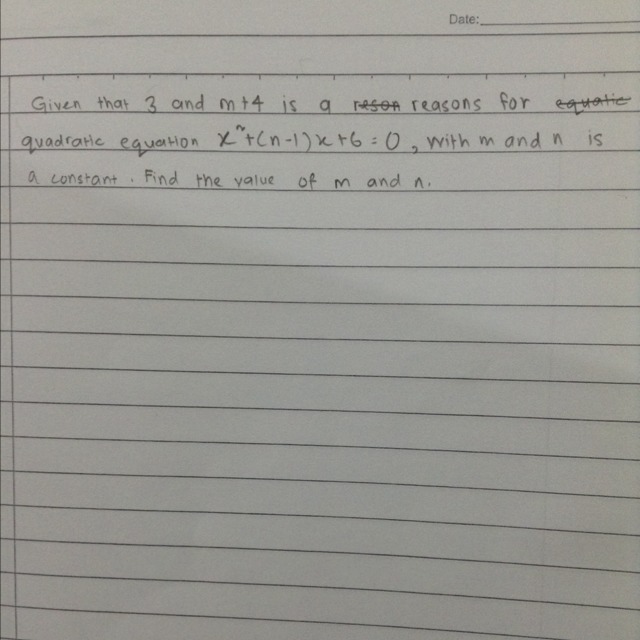 Date:
Given that 3 and m+4 is a reson reasons for equatic
quadratic equation x²+(n-1)x+6=0, with m and n is
a constant. Find the value of m and n.